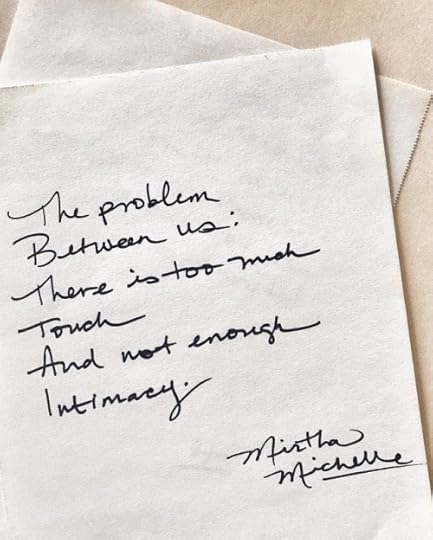 The problem
Between us:
There is too much
Touch
And not enough
Intimacy.
Mirtha
Michelle